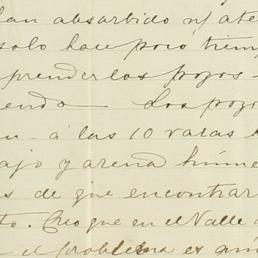 han absorbido mi ate
solo hace poco tiem
prender los pozos -
endo Los pozo
n - á las 10 varas
ajo y arena húme
s de que encontrar
to. Creo que en el Valle
el problema es